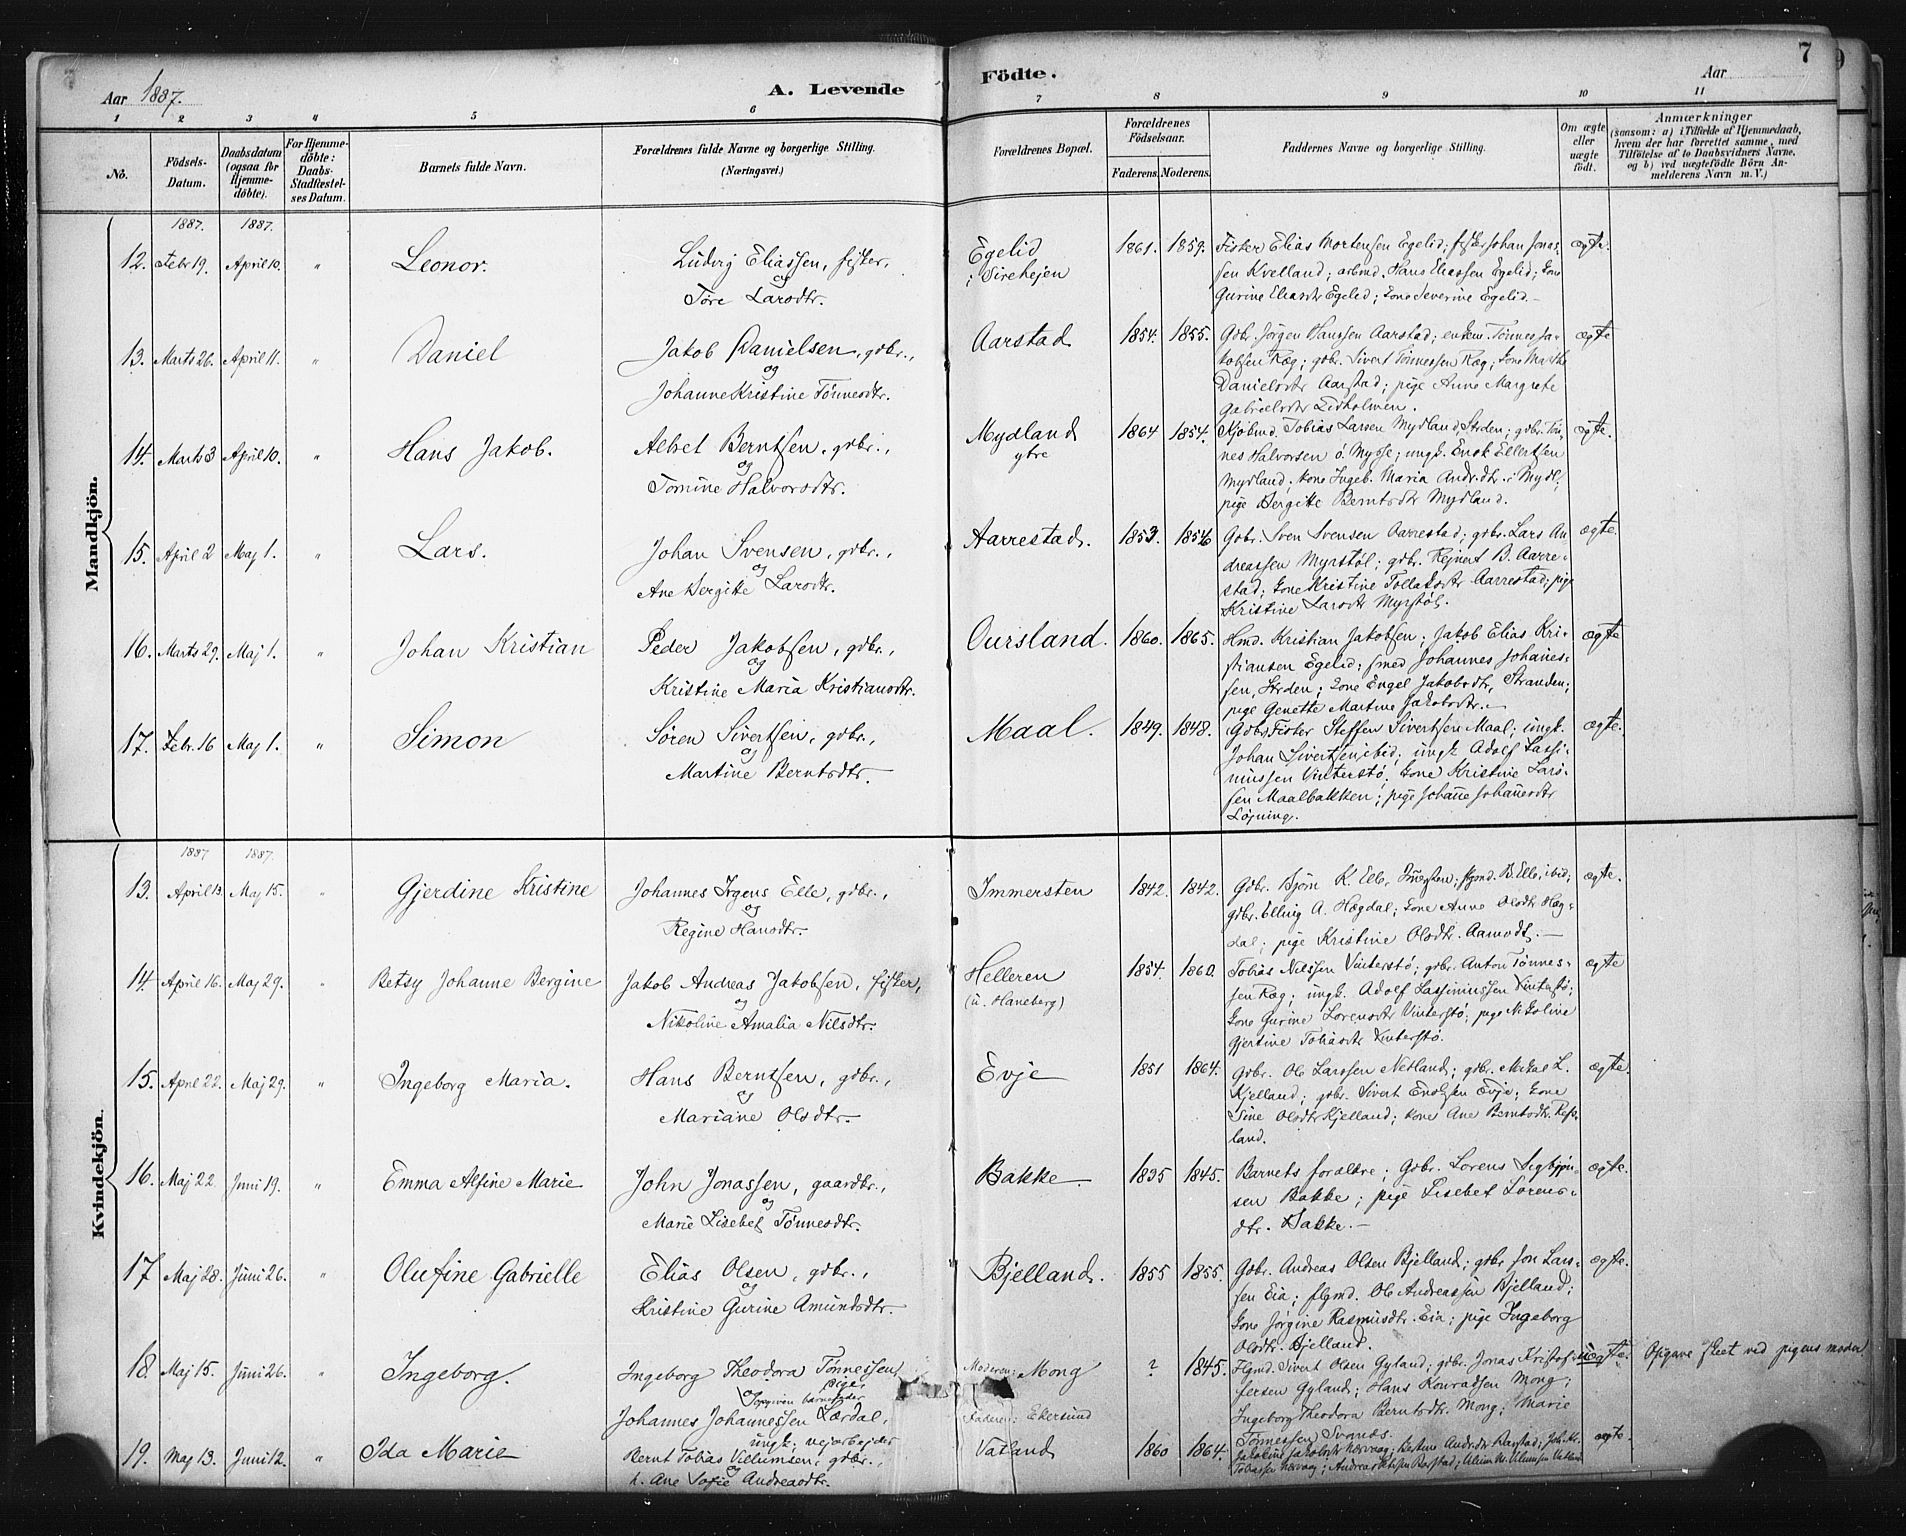 7
7
Aar 1887.
A. Levende
Födte.
Aar
1 2 3 4 5 6 7 8 9 10 11
No.
Födsels-
Datum.
Daabsdatum
(ogsaa for
Hjemme-
döbte).
For Hjemme-
döbte:
Daabs-
Stadfæstel-
ses Datum.
Barnets fulde Navn.
Forældrenes fulde Navne og borgerlige Stilling.
(Næringsvei.)
Forældrenes Bopæl.
Forældrenes
Födselsaar.
Faderens. Moderens.
Faddernes Navne og borgerlige Stilling.
Om ægte
eller
uægte
født.
Anmærkninger
(saasom: a) i Tilfælde af Hjemmedaab,
hvem der har forrettet samme, med
Tilföielse af to Daabsvidners Navne,
og b) ved uægtefödte Börn An-
melderens Navn m. V.)
Mandkjön.
1887. 1887.
12. Febr 19. April 10. " Leonor. Ludvig Eliassen, fisker,
og
Tore Larsdtr.
Egelid
i Sirehejen
1861. 1859.
Fisker Elias Mortensen Egelid; fisker Johan Jonas-
sen Kvelland; arbmd. Hans Eliassen Egelid; kone
Gurine Eliasdtr Egelid; kone Severine Egelid.
ægte.
13. Marts 26. April 11. " Daniel Jakob Danielsen, gdbr.,
og
Johanne Kristine Tönnesdtr.
Aarstad 1854. 1855.
Gdbr. Jörgen Hanssen Aarstad; enkem. Tönnes Ja-
kobsen Ræg; gdbr. Sivert Tönnessen Ræg; kone Marthe
Danielsdtr Aarstad; pige Anne Margrete
Gabrielsdtr Eidholmen.
ægte
14. Marts 3 April 10. " Hans Jakob. Albret Berntsen, gdbr.,
og
Tomine Halvorsdtr.
Mydland
ytre
1864 1854.
Kjöbmd. Tobias Larsen Mydland, Strden; gdbr. Tön-
nes Halvorsen ö. Mysse; ungk. Enok Ellertsen
Mydland. kone Ingeb. Maria Andr.dtr. i Mydl;
pige Bergitte Berntsdtr Mydland.
ægte.
15. April 2 Maj 1. " Lars. Johan Svensen, gdbr.,
og
Ane Bergitte Larsdtr.
Aarrestad. 1853. 1856
Gdbr. Sven Svensen Aarrestad; gdbr. Lars An
dreassen Myrstöl; gdbr. Rejnert B. Aarre-
stad; kone Kristine Tollaksdtr Aarrestad; pige
Kristine Larsdtr Myrstöl.
ægte.
16. Marts 29. Maj 1. " Johan Kristian Peder Jakobsen, gdbr.,
og
Kristine Maria Kristiansdtr.
Oursland. 1860. 1865.
Hmd. Kristian Jakobsen; Jakob Elias Kri-
stiansen Egelid; smed Johannes Johanes-
sen, Strden; kone Engel Jakobsdtr, Stranden;
pige Genette Martine Jakobsdtr.
ægte
17. Febr. 16 Maj 1. " Simon Sören Sivertsen, gdbr.,
og
Martine Berntsdtr.
Maal. 1849. 1848.
Gdbr. Fisker Steffen Sivertsen Maal; ungk.
Johan Sivertsen, ibid; ungk. Adolf Lassi-
niussen Vinterstö. kone Kristine Lars-
sen Maalbakken; pige Johañe Johañesdtr
Løjning.
ægte.
Kvindekjön.
1887 1887.
13. April 13. Maj 15. " Gjerdine Kristine Johannes Irgens Elle, gdbr.,
og
Regine Hansdtr.
Immersten 1842. 1842.
Gdbr. Bjørn K. Elle, ibid;
gdbr. Elling A. Hægdal; kone Anne Olsdtr Hæg-
dal; pige Kristine Olsdtr. Aamodt.
ægte.
14. April 16. Maj 29. " Betsy Johanne Bergine Jakob Andreas Jakobsen, fisker,
og
Nikoline Amalia Nilsdtr.
Helleren
(u. Haneberg)
1854. 1860.
Tobias Nilssen Vinterstö; gdbr. Anton Tönnes-
sen Ræg; ungk. Adolf Lassiniussen Vinterstö;
kone Gurine Lorensdtr Vinterstö; pige Nikoline
Gjertine Tobiasdtr Vinterstö.
ægte
15. April 22. Maj 29. " Ingeborg Maria. Hans Berntsen, gdbr.,
og
Mariane Olsdtr.
Evje 1851 1864.
Gdbr. Ole Larssen Netland; gdbr. Mikal L.
Kjelland; gdbr. Sivert Enoksen Evje; kone
Sine Olsdtr Kjelland; kone Ane Berntsdtr. Refs-
land.
ægte.
16. Maj 22 Juni 19. " Emma Alfine Marie John Jonassen, gaardbr.,
og
Marie Lisebet Tönnesdtr.
Bakke. 1835 1845.
Barnets forældre; Gdbr. Lorens Sigbjörn-
sen Bakke; pige Lisebet Lorens-
dtr. Bakke.
ægte.
17 Maj 28. Juni 26. " Olufine Gabrielle Elias Olsen, gdbr.,
og
Kristine Gurine Amundsdtr.
Bjelland. 1855 1855.
Gdbr. Andreas Olsen Bjelland; gdbr Jon Lars-
sen Eia; flgmd. Ole Andreassen Bjelland;
kone Jörgine Rasmusdtr. Eia; pige Ingeborg
Olsdtr. Bjelland.
ægte.
18. Maj 15. Juni 26. " Ingeborg. Ingeborg Theodora Tönnessen,
pige,
og opgiven barnefader
Johannes Johannessen Lærdal,
ungk., vejarbejder
Moderen: Mong
Faderen: Ekersund
? 1845.
Flgmd. Sivert Olsen Gyland; gdbr. Jonas Kristof-
fersen Gyland; Hans Konradsen Mong;
Ingeborg Theodora Berntsdtr. Mong; Marie
Tönnessen Svanes.
uægte. Opgave skeet ved pigens moder
19. Maj 13. Juni 12. " Ida Marie Bernt Tobias Villumsen, gdbr.,
og
h. Ane Sofie Andreasdtr.
Vatland 1860 1864.
Jakobine Jakobsdtr Hervaag; Bertine Andr.dtr Barstad; Joh. Kr.
Tobiassen Hervaag; Andreas Barstad; Villumsen Vatland
ægte.